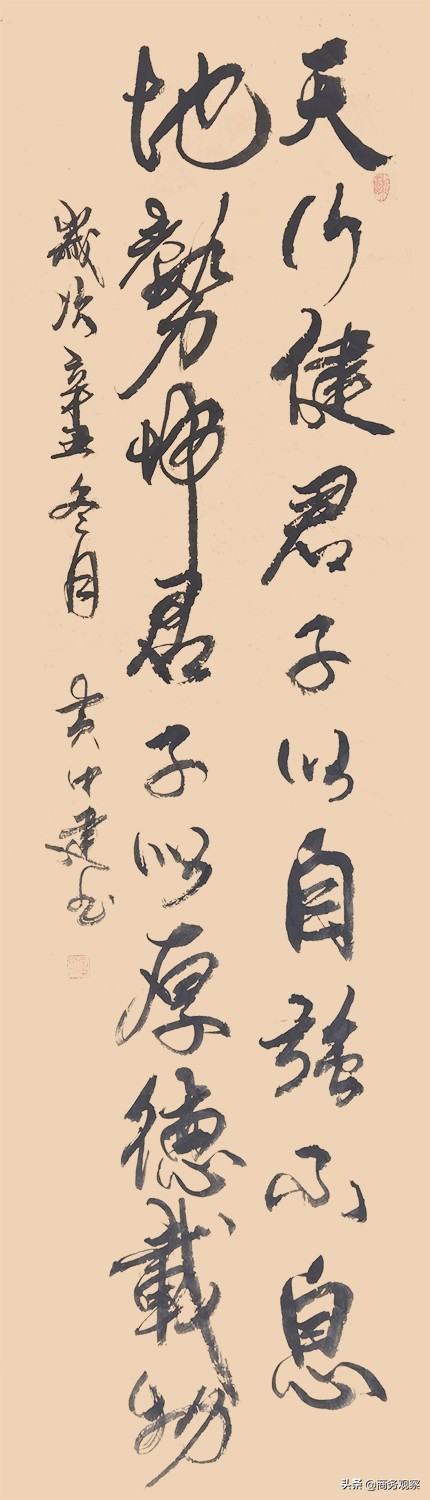 天行健君子以自強不息
地勢坤君子以厚德載物
歲次辛丑冬月 黄中建书
头条 @商务观察